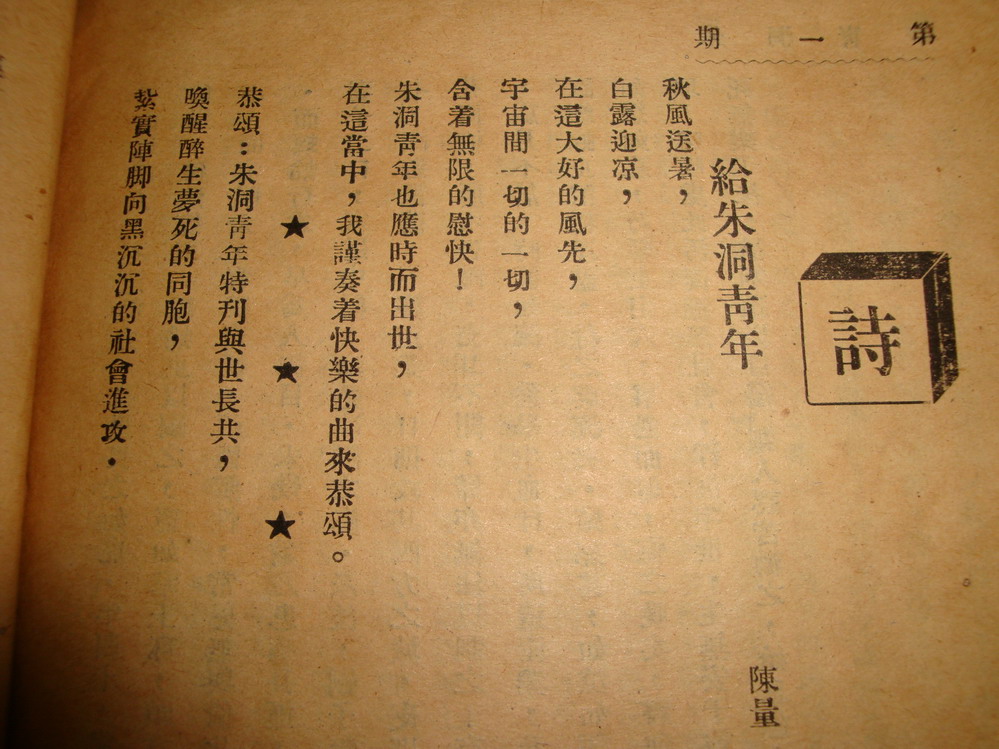 第一期
詩
給朱洞青年
陳量
秋風送暑，
白露迎凉，
在這大好的風先，
宇宙間一切的一切，
含着無限的慰快！
朱洞青年也應時而出世，
在這當中，我謹奏着快樂的曲來恭頌。
★ ★ ★
恭頌：朱洞青年特刊與世長共，
喚醒醉生夢死的同胞，
紮實陣脚向黑沉沉的社會進攻．